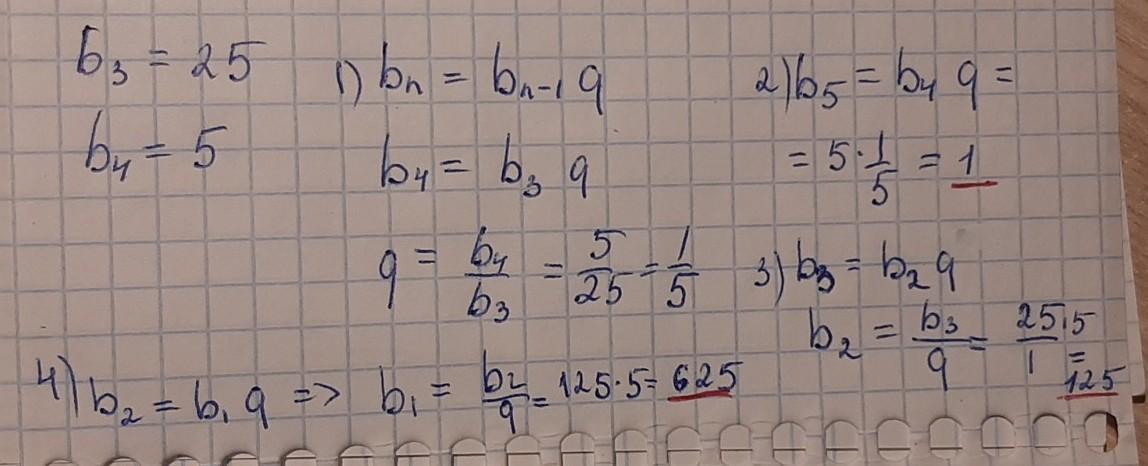 b₃ = 25
b₄ = 5
1) bₙ = bₙ₋₁ q
b₄ = b₃ q
q = b₄/b₃ = 5/25 = 1/5
2) b₅ = b₄ q =
= 5 · 1/5 = 1
3) b₃ = b₂ q
b₂ = b₃/q = 25·5/1 =
125
4) b₂ = b₁ q => b₁ = b₂/q = 125·5 = 625